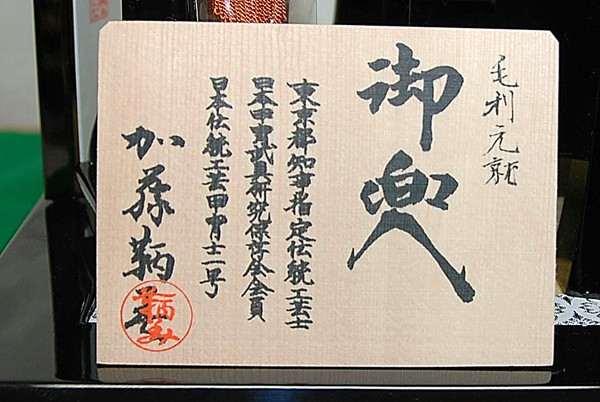 毛利元就
御兜
東京都知事指定伝統工芸士
日本甲冑武具研究保存会会員
日本伝統工芸甲冑士一号
加藤鞆美